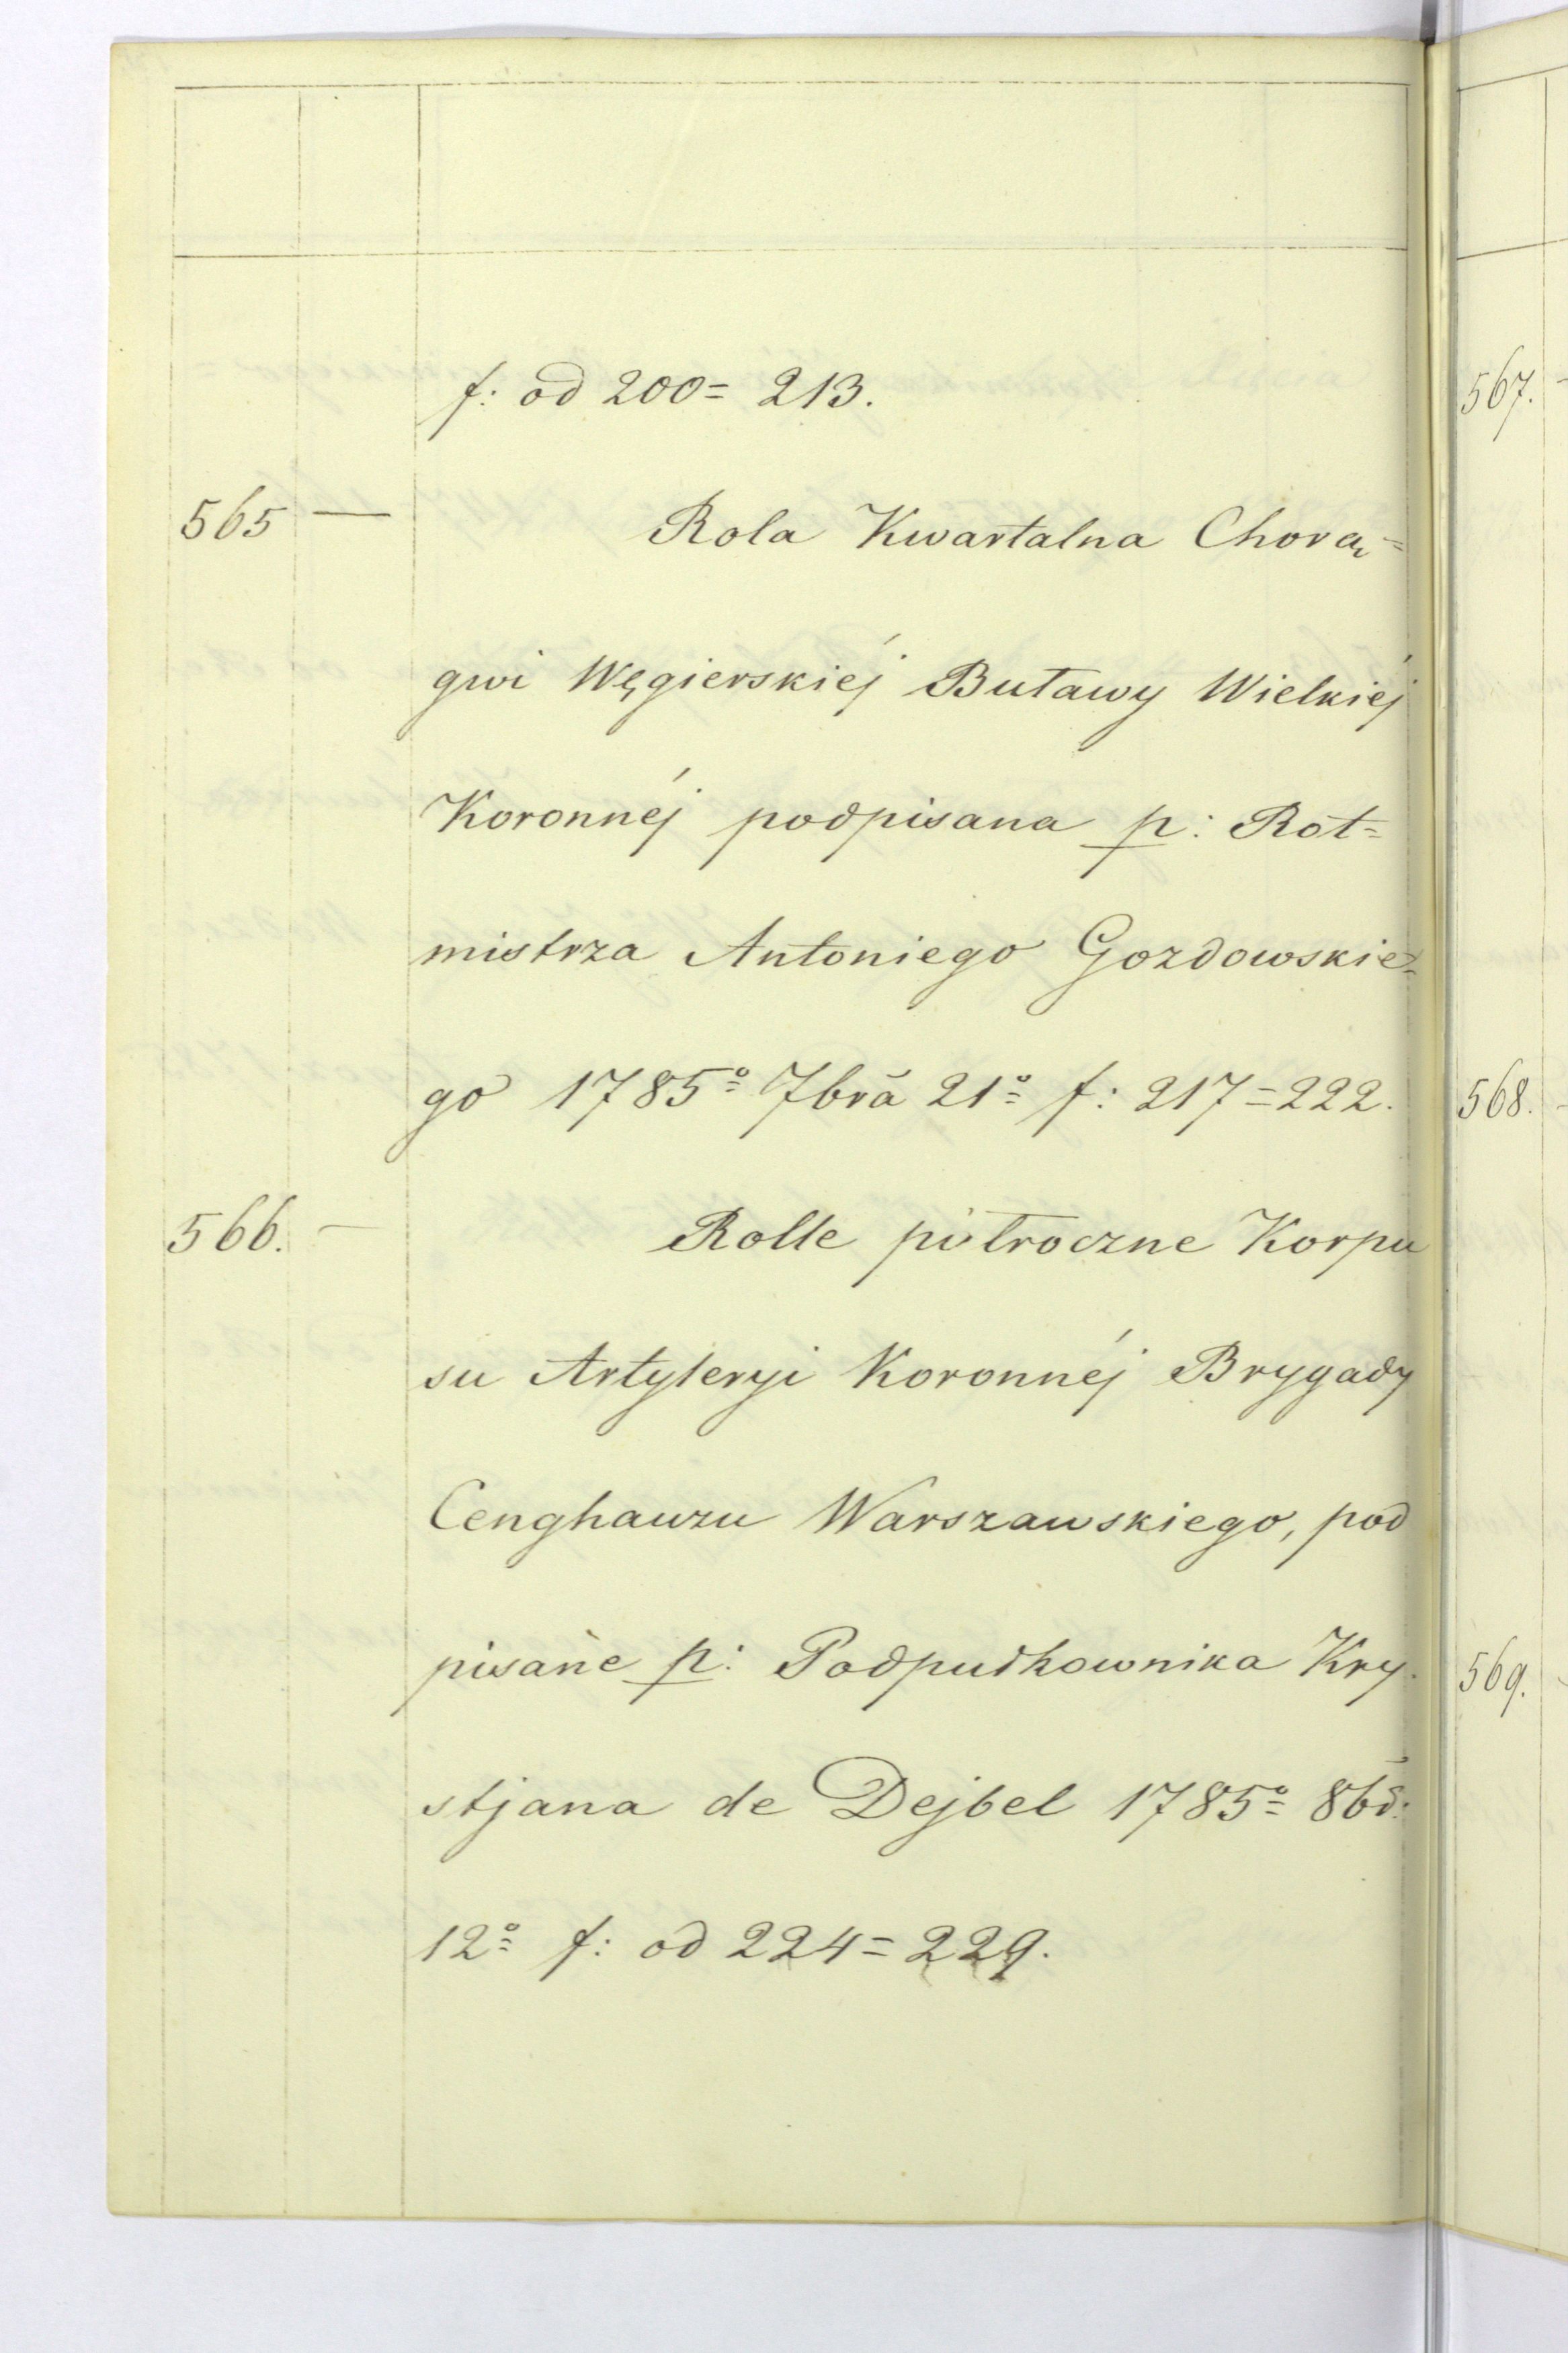 f: od 200= 213.
565 — Rola Kwartalna Chorą=
gwi Węgierskiéj Buławy Wielkiéj
Koronnéj podpisana p: Rot=
mistrza Antoniego Gozdowskie=
go 1785º 7brã 21º f: 217=222.
566. — Rolle półroczne Korpu
su Artyleryi Koronnéj Brygady
Cenghauzu Warszawskiego, pod
pisane p: Podpułkownika Kry
stjana de Dejbel 1785º
12º f: od 224=229.
567.
568.
569.